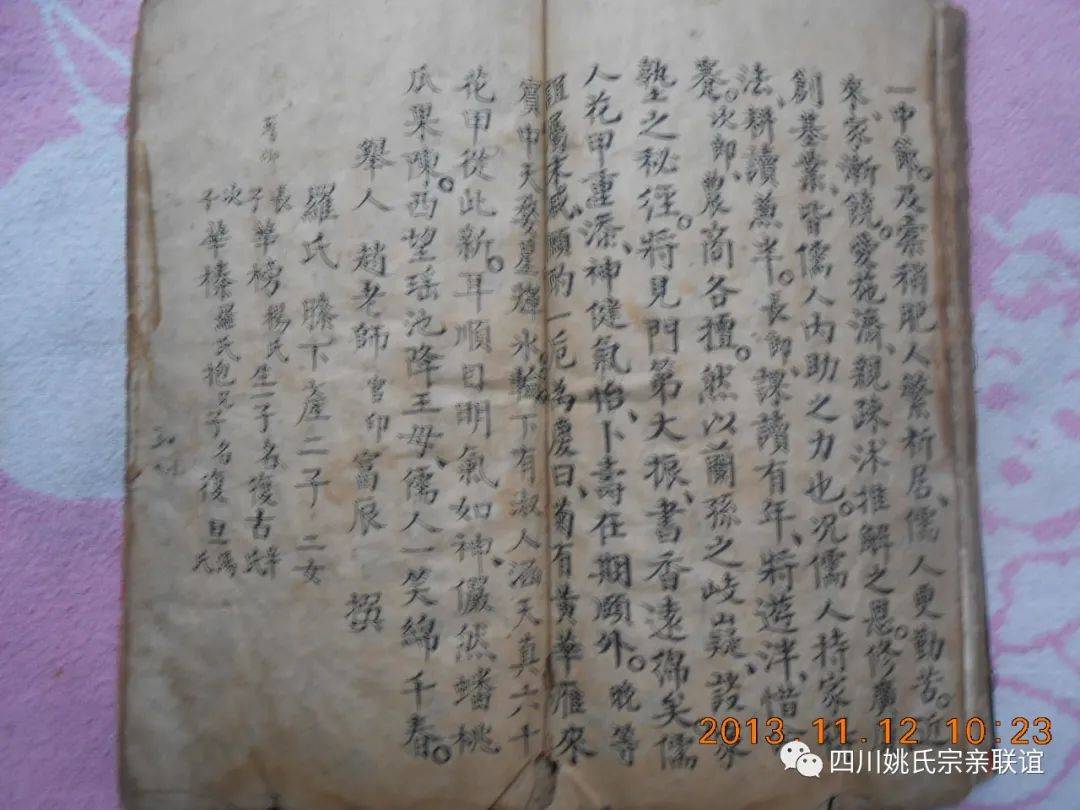 一中節。及寨稍肥人繁析居、儒人更勤苦。近
來家漸饒。愛施濟、親疎沐推解之恩。修廣
創基業、皆儒人內助之力也。况儒人持家
法、耕讀兼半。長郎、課讀有年、將遊泮、惜
蹇。次郎、農商各擅。然以蘭孫之岐嶷、設家
塾之秘經。將見門第大振、書香遠綿矣儒
人花甲重添、神健氣怡、卜壽在期頤外。晚等
誼屬末戚、願酌一卮為慶曰、菊有黃華雁來
賓中天婺星輝氷輪下有淑人涵天真六十
花甲從此新。耳順目明氣如神、儼然蟠桃
瓜果陳。西望瑤池降王母、儒人一笑綿千春。
舉人 趙老師 官印富辰 撰
羅氏 膝下產二子 二女
長子華榜 楊氏生一子名復古 氏
次子華榛 羅氏抱兄子名復旦 馮氏
2013.11.12 10:23
四川姚氏宗亲联谊